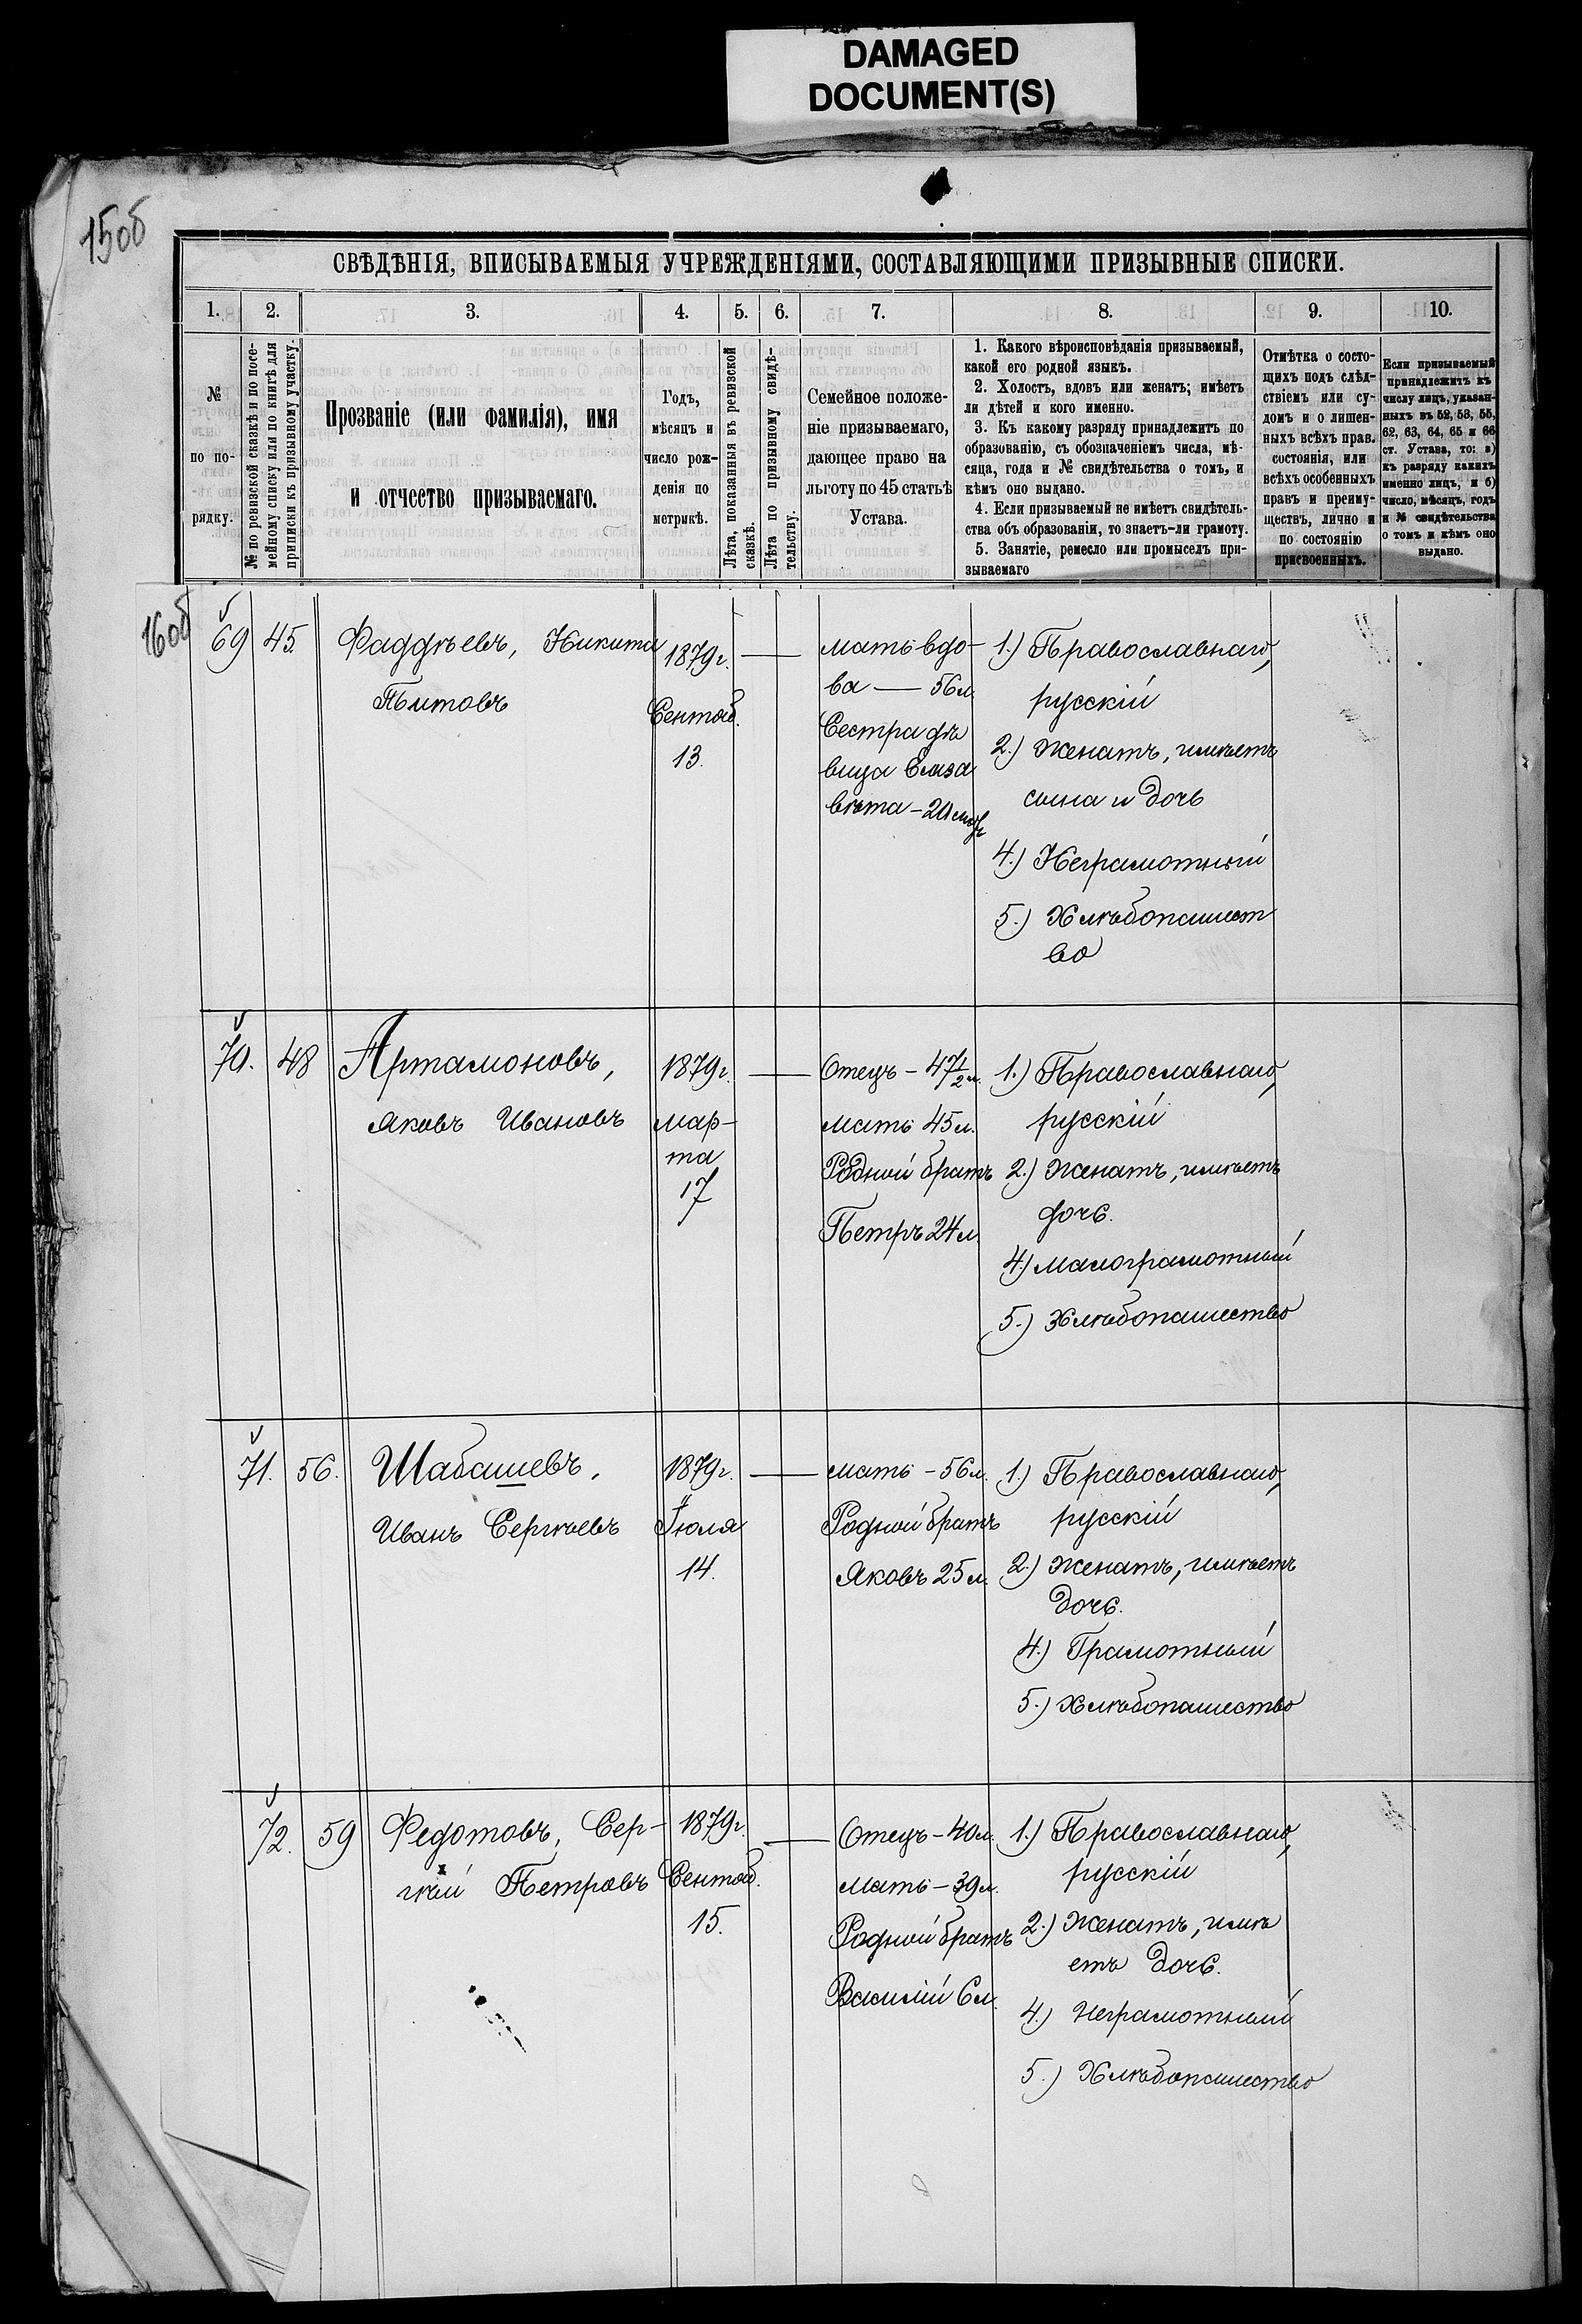 DAMAGED
DOCUMENT(S)
15об
СВѢДѢНІЯ, ВПИСЫВАЕМЫЯ УЧРЕЖДЕНІЯМИ, СОСТАВЛЯЮЩИМИ ПРИЗЫВНЫЕ СПИСКИ.
1. 2. 3. 4. 5. 6. 7. 8. 9. 10.
№
по по-
рядку.
№ по ревизской сказкѣ и по посе-
мейному списку или по книгѣ для
приписки къ призывному участку.
Прозваніе (или фамилія), имя
и отчество призываемаго.
Годъ,
мѣсяцъ и
число рож-
денія по
метрикѣ.
Лѣта, показанныя въ ревизской
сказкѣ.
Лѣта по призывному свидѣ-
тельству.
Семейное положе-
ніе призываемаго,
дающее право на
льготу по 45 статьѣ
Устава.
1. Какого вѣроисповѣданія призываемый,
какой его родной языкъ.
2. Холостъ, вдовъ или женатъ; имѣетъ
ли дѣтей и кого именно.
3. Къ какому разряду принадлежитъ по
образованію, съ обозначеніемъ числа, мѣ-
сяца, года и № свидѣтельства о томъ, и
кѣмъ оно выдано.
4. Если призываемый не имѣетъ свидѣтель-
ства объ образованіи, то знаетъ-ли грамоту.
5. Занятіе, ремесло или промыселъ при-
зываемаго
Отмѣтка о состо-
щихъ подъ слѣд-
ствіемъ или су-
домъ и о лишен-
ныхъ всѣхъ прав.
состоянія, или
всѣхъ особенныхъ
правъ и преиму-
ществъ, лично и
по состоянію
присвоенныхъ.
Если призываемый
принадлежитъ къ
числу лицъ, указан-
ныхъ въ 52, 53, 55,
62, 63, 64, 65 и 66
ст. Устава, то: а)
къ разряду какихъ
именно лицъ, и б)
число, мѣсяцъ, годъ
и № свидѣтельства
о томъ и кѣмъ оно
выдано.
16об
69
45.
Фаддѣевъ, Никита
Титовъ
1879г.
Сентяб.
13.
мать вдо-
ва — 56л.
Сестра дѣ
вица Елиза
вѣта - 20 лѣтъ
1.) Православнаго,
русскій
2.) Женатъ, имѣетъ
сына и дочь
4.) Неграмотный
5.) Хлѣбопашест
во
70.
48
Артамоновъ,
Яковъ Ивановъ
1879г.
мар-
та
17
Отецъ - 47 1/2 л.
мать 45 л.
Родной братъ
Петръ 24 л.
1.) Православнаго,
русскій
2.) Женатъ, имѣетъ
дочь.
4.) малограмотный
5.) Хлѣбопашество
71.
56.
Шабашевъ,
Иванъ Сергѣевъ
1879г.
Іюля
14.
мать - 56 л.
Родной братъ
Яковъ 25 л.
1.) Православнаго,
русскій
2.) Женатъ, имѣетъ
дочь.
4.) Грамотный
5.) Хлѣбопашество
72.
59
Федотовъ, Сер-
гѣй Петровъ
1879г.
Сентяб.
15.
Отецъ - 40 л.
мать - 39 л.
Родной братъ
Василій 6 л.
1.) Православнаго,
русскій
2.) Женатъ, имѣ
етъ дочь.
4.) Неграмотный
5.) Хлѣбопашество